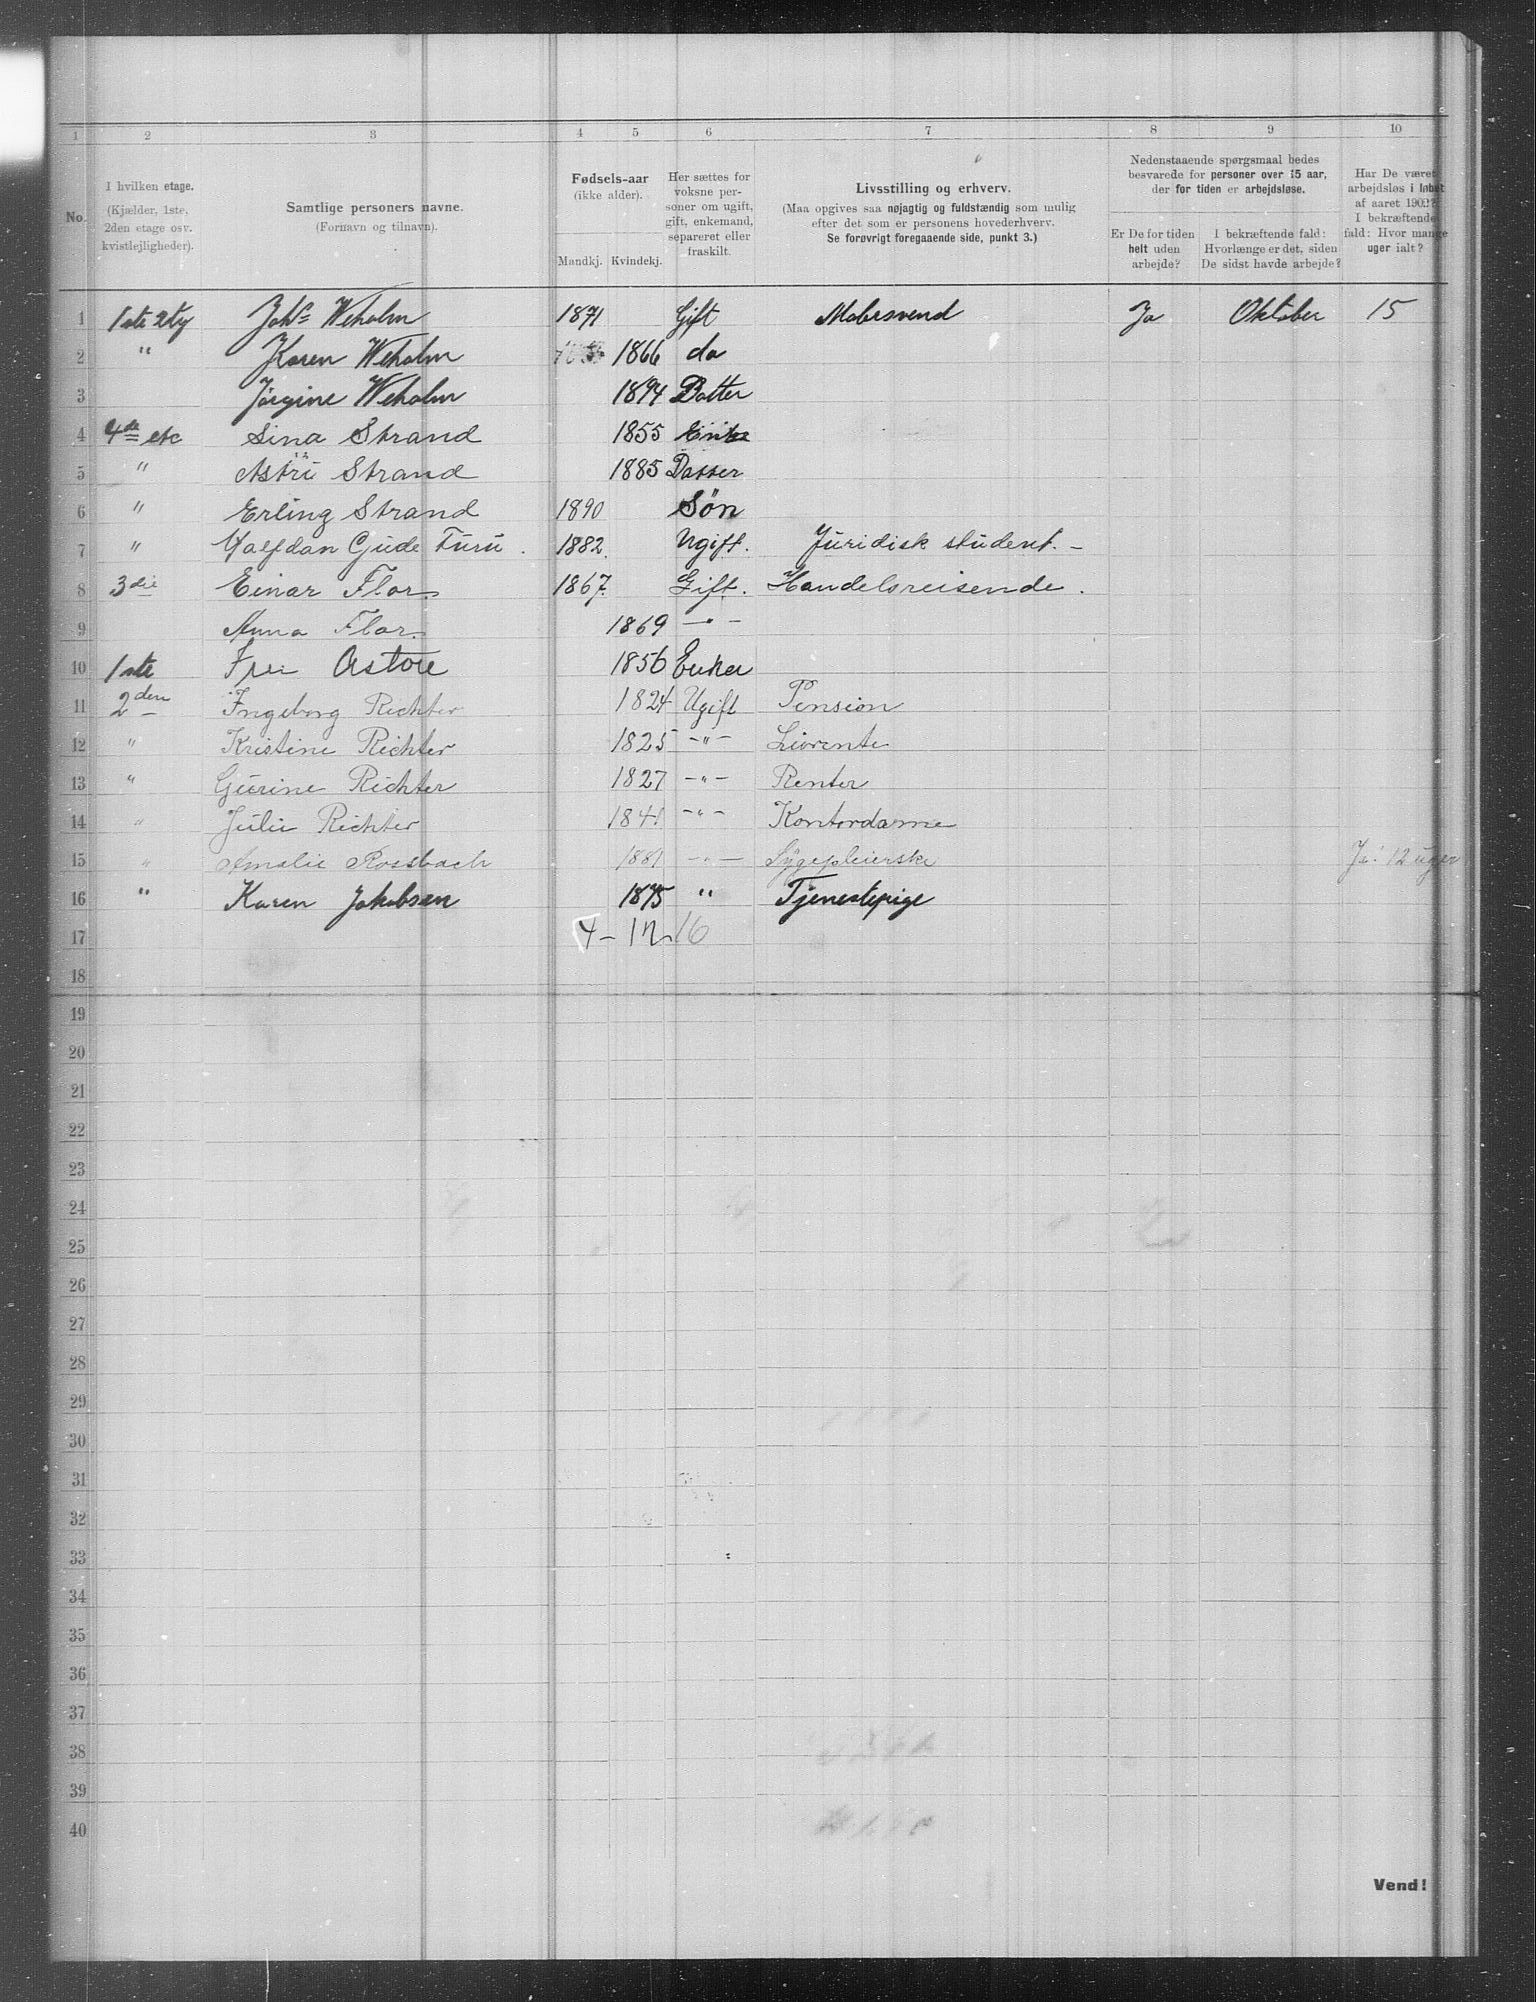 1 2 3 4 5 6 7 8 9 10
No.
I hvilken etage.
(Kjælder, 1ste,
2den etage osv.
kvistlejligheder).
Samtlige personers navne.
(Fornavn og tilnavn).
Fødsels-aar
(ikke alder).
Mandkj. Kvindekj.
Her sættes for
voksne per-
soner om ugift,
gift, enkemand,
separeret eller
fraskilt.
Livsstilling og erhverv.
(Maa opgives saa nøjagtig og fuldstændig som mulig
efter det som er personens hovederhverv.
Se forøvrigt foregaaende side, punkt 3.)
Nedenstaaende spørgsmaal bedes
besvarede for personer over 15 aar,
der for tiden er arbejdsløse.
Er De for tiden
helt uden
arbejde?
I bekræftende fald:
Hvorlænge er det, siden
De sidst havde arbejde?
Har De været
arbejdsløs i løbet
af aaret 1902?
I bekræftende
fald: Hvor mange
uger ialt?
1 1ste 2ty Johs Weholm 1871 Gift Malersvend Ja Oktober 15
2 " Karen Weholm 1866 do
3 Jørgine Weholm 1894 Datter
4 4de etc Sina Strand 1855 Enke
5 " Astri Strand 1885 Datter
6 " Erling Strand 1890 Søn
7 " Halfdan Gude Furu. 1882. Ugift. Juridisk student. –
8 3die Einar Flor. 1867. Gift. Handelsreisende.
9 Anna Flor. 1869 – " –
10 1ste Fru 1856 Enker
11 2den Ingeborg Richter 1824 Ugift Pension
12 " Kristine Richter 1825 – " – Livrente
13 " Gurine Richter 1827 – " – Renter
14 " Julie Richter 1841 – " – Kontordame
15 " Amalie Rossbach 1881 – " – Sygepleierske Ja! 12 uger
16 " Karen Jakobsen 1875 " Tjenestepige
17 4 – 12 16
18
19
20
21
22
23
24
25
26
27
28
29
30
31
32
33
34
35
36
37
38
39
40
Vend!